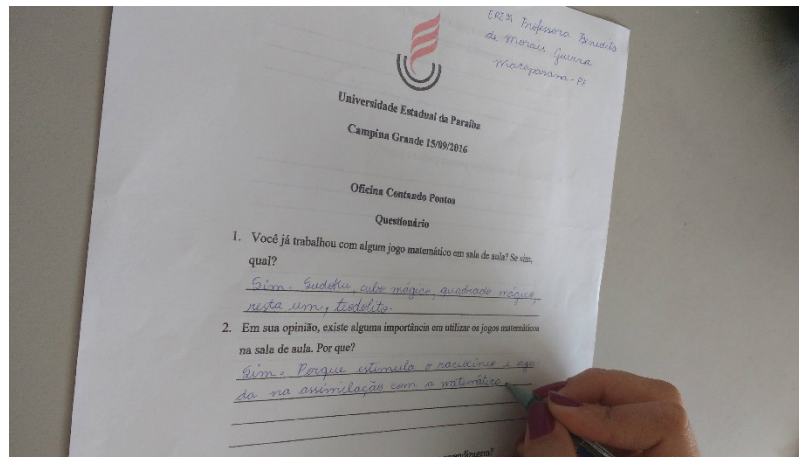 EREM Professora Benedita
de Morais Guerra
Macaparana - PE
Universidade Estadual da Paraíba
Campina Grande 15/09/2016
Oficina Contando Pontos
Questionário
1. Você já trabalhou com algum jogo matemático em sala de aula? Se sim,
qual?
Sim. Sudoku, cubo mágico, quadrado mágico,
resta um, teodolito.
2. Em sua opinião, existe alguma importância em utilizar os jogos matemáticos
na sala de aula. Por que?
Sim. Porque estimula o raciocínio e aju
da na assimilação com a matemática.